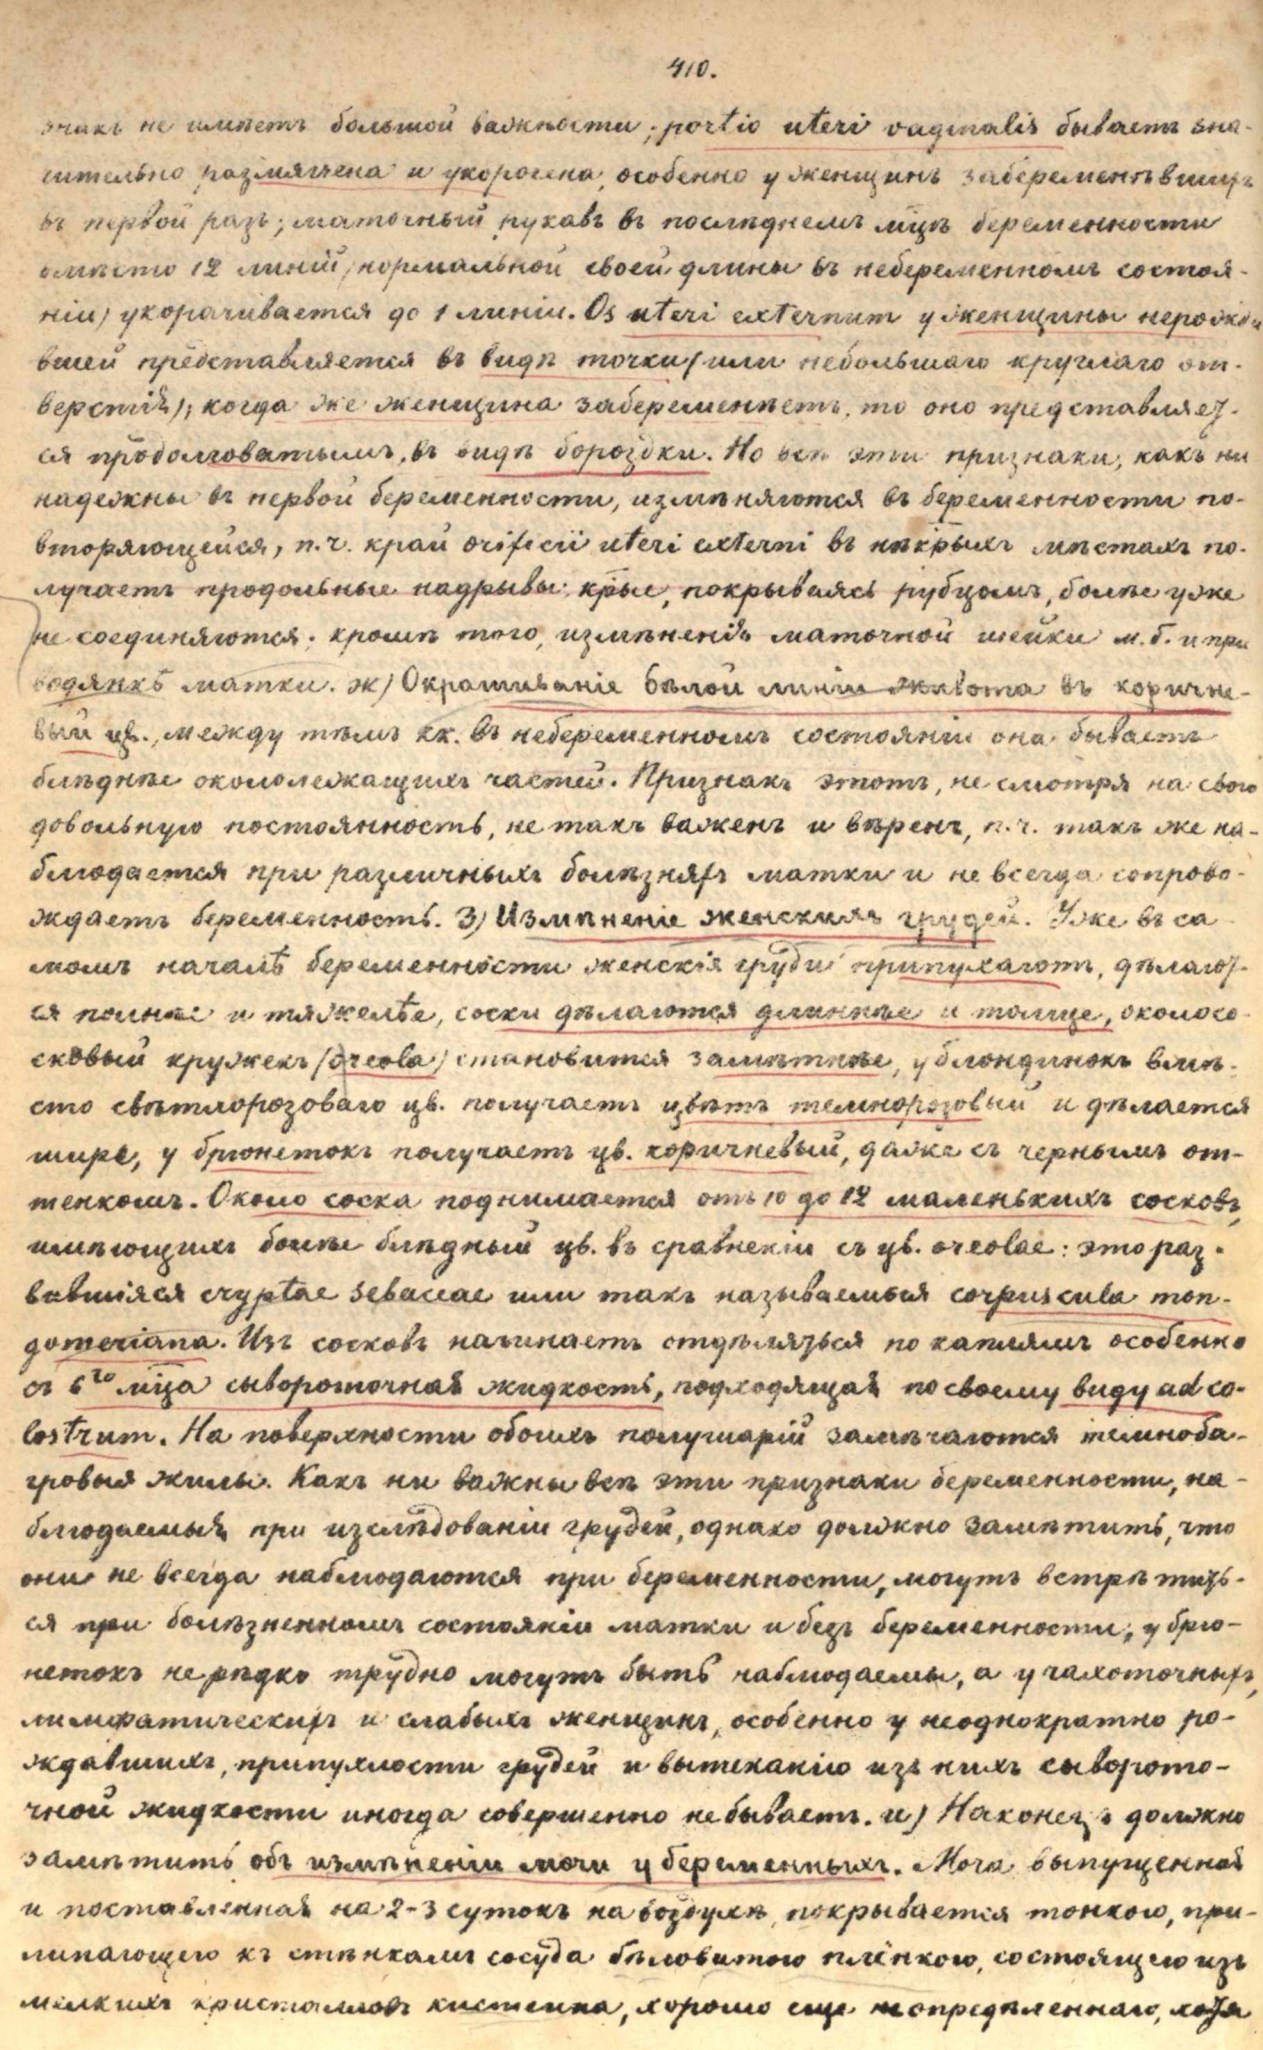 410.
знакъ не имѣетъ большой важности; portio uteri vaginalis бываетъ зна-
чительно размягчена и укорочена, особенно у женщинъ забеременѣвшихъ
въ первой разъ; маточный рукавъ въ послѣднемъ мцѣ беременности
вмѣсто 12 линій (нормальной своей длины въ небеременномъ состоя-
ніи) укорачивается до 1 линіи. Os uteri externum у женщины нерожа
вшей представляется въ видѣ точки (или небольшаго круглаго от-
верстія); когда же женщина забеременѣетъ, то оно представляет-
ся продолговатымъ, въ видѣ бороздки. Но всѣ эти признаки, какъ ни
надежны въ первой беременности, измѣняются въ беременности по-
вторяющейся, п.ч. край orificii uteri externi въ нѣкрыхъ мѣстахъ по-
лучаетъ продольные надрывы, крые, покрываясь рубцомъ, болѣе уже
не соединяются; кромѣ того, измѣненія маточной шейки м.б. и при
водянкѣ матки. ж) Окрашиваніе бѣлой линіи живота въ коричне-
вый цв., между тѣмъ кк. въ небеременномъ состояніи она бываетъ
блѣднѣе окололежащихъ частей. Признакъ этотъ, не смотря на свою
довольную постоянность, не такъ важенъ и вѣренъ, п.ч. такъ же на-
блюдается при различныхъ болѣзняхъ матки и не всегда сопрово-
ждаетъ беременность. З) Измѣненіе женскихъ грудей. Уже въ са-
момъ началѣ беременности женскія груди припухаютъ, дѣлают-
ся полнѣе и тяжелѣе, соски дѣлаются длиннѣе и толще, околосо-
сковый кружекъ (areola) становится замѣтнѣе, у блондинокъ вмѣ-
сто свѣтлорозоваго цв. получаетъ цвѣтъ темнорозовый и дѣлается
шире, у брюнетокъ получаетъ цв. коричневый, даже съ чернымъ от-
тенкомъ. Около соска поднимается отъ 10 до 12 маленькихъ сосковъ,
имѣющихъ болѣе блѣдный цв. въ сравненіи съ цв. areolae: это раз-
вившіяся cryptae sebaceae или такъ называемыя corpuscula mon-
gomeriana. Изъ сосковъ начинаетъ отдѣляться по каплямъ особенно
съ 6го мца сывороточная жидкость, подходящая по своему виду ad co-
lostrum. На поверхности обоихъ полушарій замѣчаются темноба-
гровыя жилы. Какъ ни важны всѣ эти признаки беременности, на-
блюдаемыя при изслѣдованіи грудей, однако должно замѣтить, что
они не всегда наблюдаются при беременности, могутъ встрѣтить-
ся при болѣзненномъ состояніи матки и безъ беременности; у брю-
нетокъ не рѣдко трудно могутъ быть наблюдаемы, а у чахоточныхъ,
лимфатическихъ и слабыхъ женщинъ, особенно у неоднократно ро-
ждавшихъ, припухлости грудей и вытеканію изъ нихъ сыворото-
чной жидкости иногда совершенно не бываетъ. и) Наконецъ должно
замѣтить объ измѣненіи мочи у беременныхъ. Моча выпущенная
и поставленная на 2-3 сутокъ на воздухѣ, покрывается тонкою, при-
липающею къ стѣнкамъ сосуда бѣловатою плёнкою, состоящею изъ
мелкихъ кристалловъ кистеина, хорошо еще не опредѣленнаго, хотя